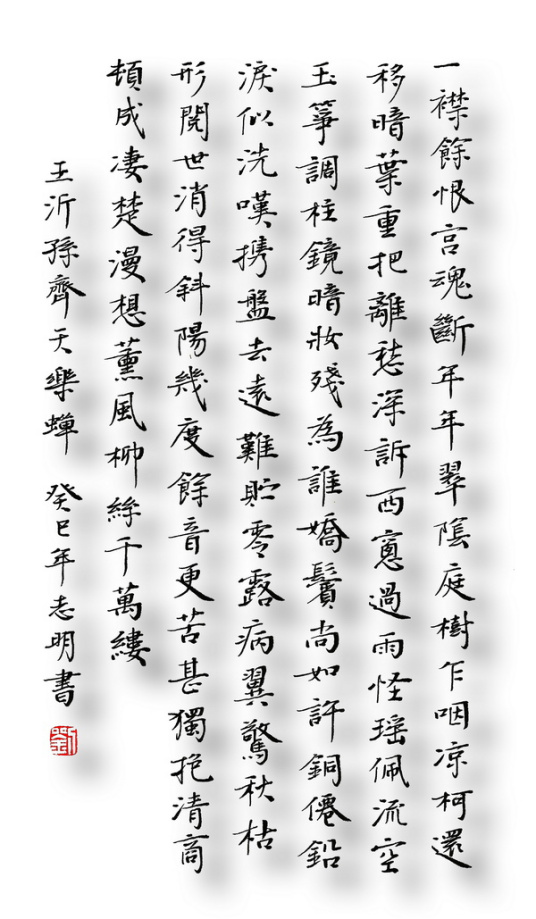 一襟餘恨宫魂斷年年翠隂庭樹乍咽凉柯還
移暗葉重把離愁深訴西窓過雨怪瑶佩流空
玉箏調柱鏡暗妝殘為誰嬌鬢尚如許銅僊鉛
淚似洗嘆携盤去遠難貯零露病翼驚秋枯
形閱世消得斜陽幾度餘音更苦甚獨抱清商
頓成凄楚漫想薰風柳絲千萬縷
王沂孫齊天樂蟬 癸巳年志明書
劉